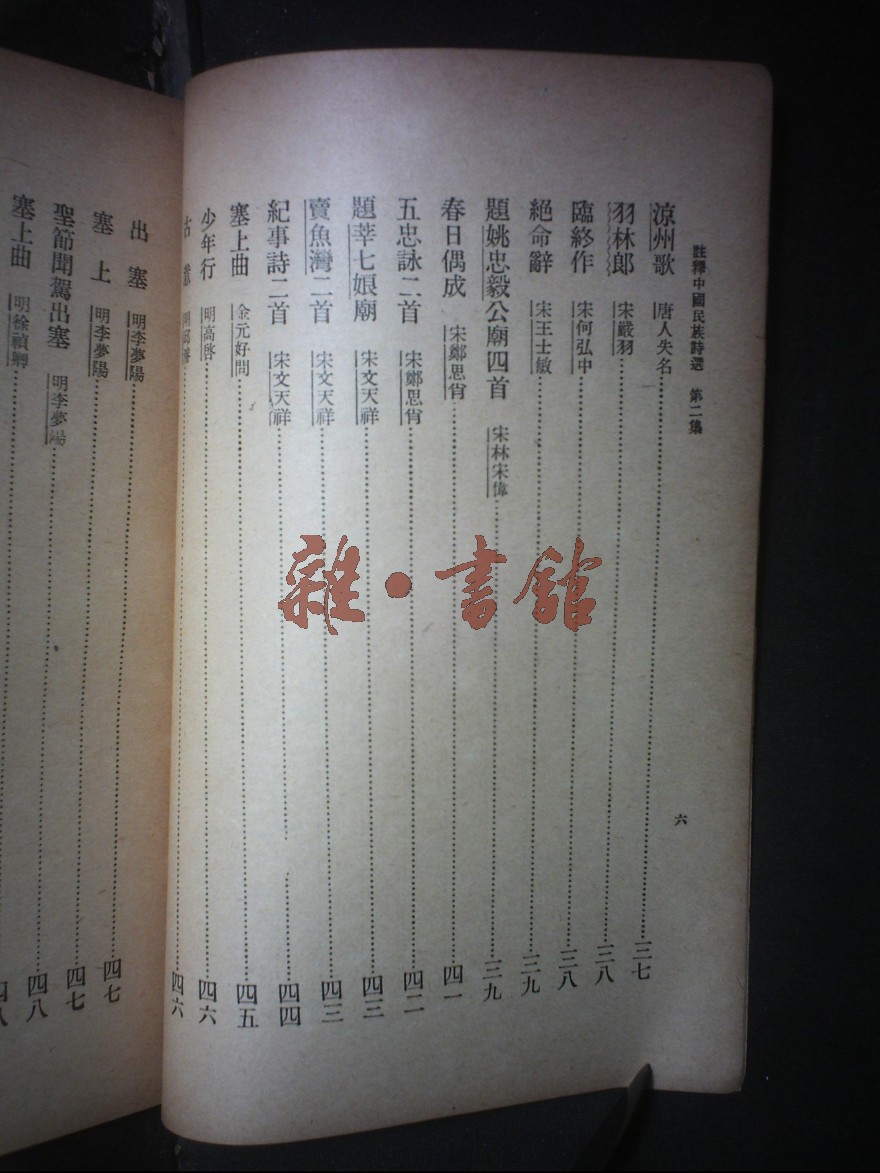 註釋中國民族詩選 第二集
六
涼州歌 唐人失名 三七
羽林郎 宋嚴羽 三八
臨終作 宋何弘中 三八
絕命辭 宋王士敏 三九
題姚忠毅公廟四首 宋林宋偉 三九
春日偶成 宋鄭思肖 四一
五忠詠二首 宋鄭思肖 四二
題莘七娘廟 宋文天祥 四三
賣魚灣二首 宋文天祥 四三
紀事詩二首 宋文天祥 四四
塞上曲 金元好問 四五
少年行 明高啓 四六
古 四六
出塞 明李夢陽 四七
塞上 明李夢陽 四七
聖節聞駕出塞 明李夢陽 四八
塞上曲 明徐禎卿
雜·書館